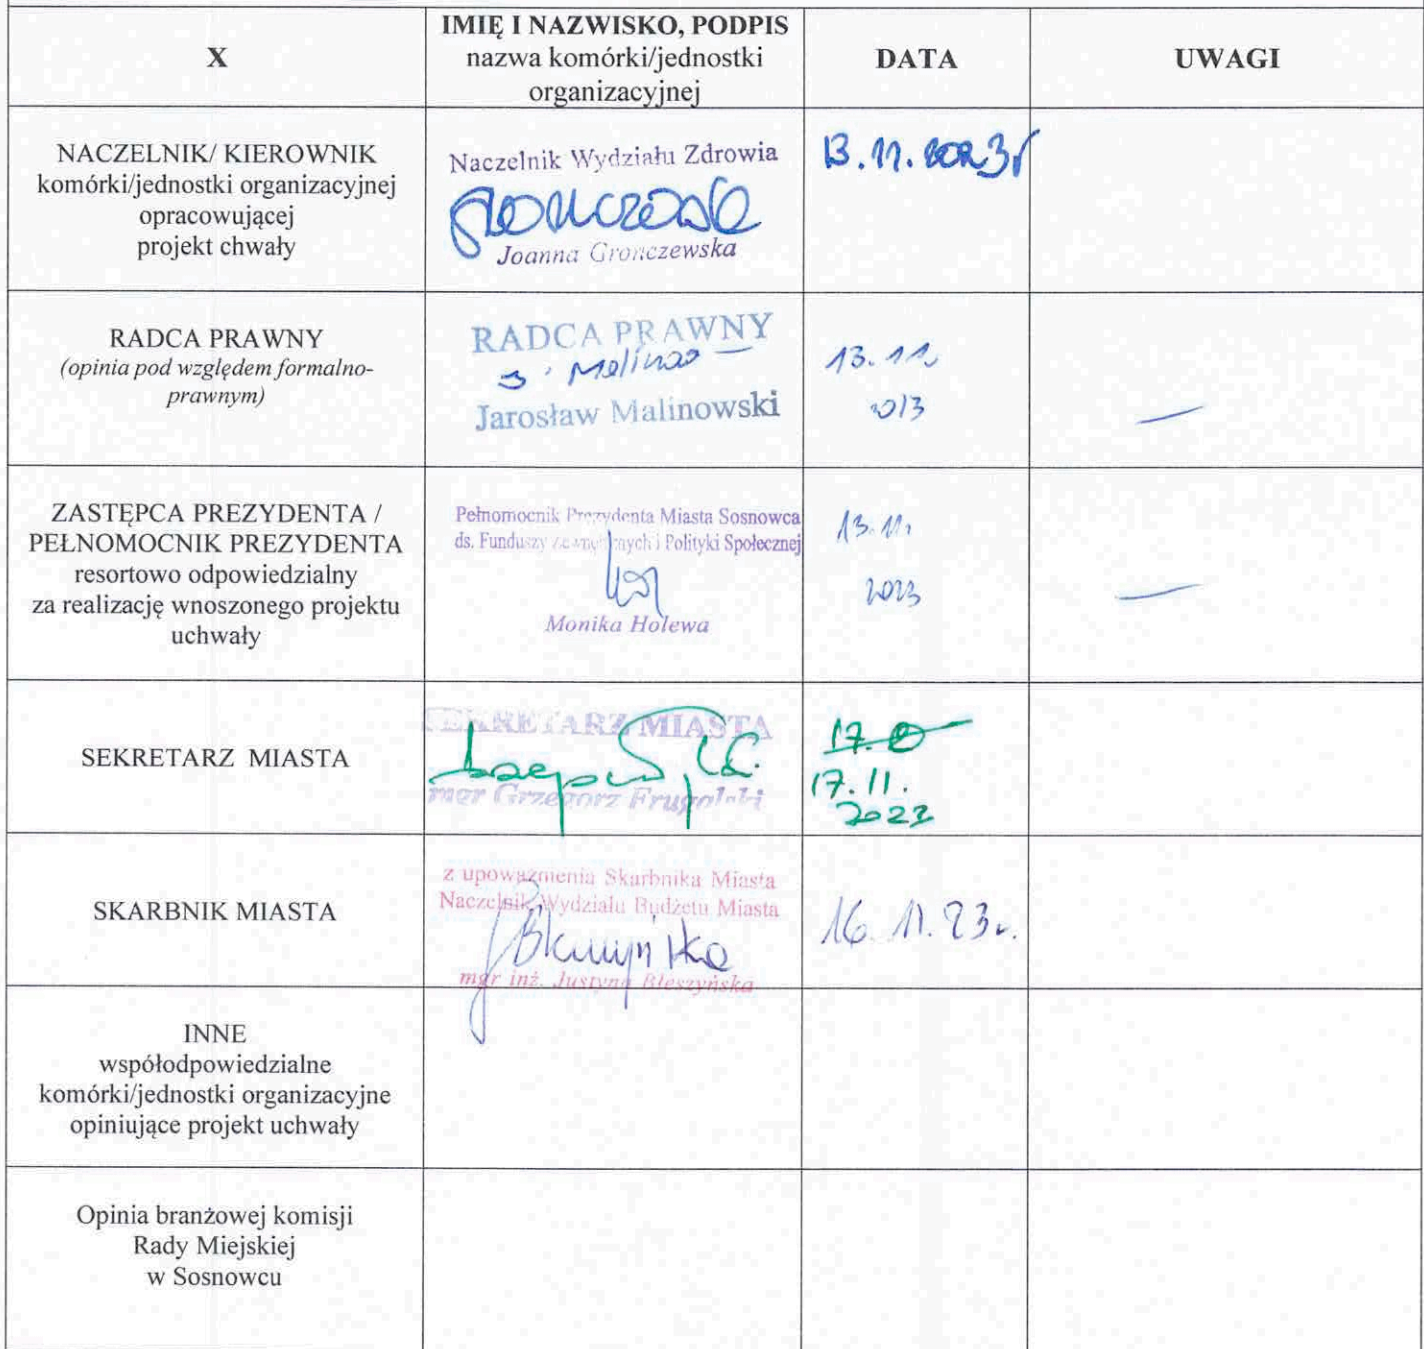 X
IMIĘ I NAZWISKO, PODPIS
nazwa komórki/jednostki
organizacyjnej
DATA
UWAGI
NACZELNIK/ KIEROWNIK
komórki/jednostki organizacyjnej
opracowującej
projekt chwały
Naczelnik Wydziału Zdrowia
Gronczewska
Joanna Gronczewska
13.11.2023r
RADCA PRAWNY
(opinia pod względem formalno-
prawnym)
RADCA PRAWNY
Jarosław Malinowski
13.11.
2013
—
ZASTĘPCA PREZYDENTA /
PEŁNOMOCNIK PREZYDENTA
resortowo odpowiedzialny
za realizację wnoszonego projektu
uchwały
Pełnomocnik Prezydenta Miasta Sosnowca
ds. Funduszy Zewnętrznych i Polityki Społecznej
Monika Holewa
13.11.
2023
—
SEKRETARZ MIASTA
SEKRETARZ MIASTA
mgr Grzegorz
17.
17.11.
2023
SKARBNIK MIASTA
z upoważnienia Skarbnika Miasta
Naczelnik Wydziału Budżetu Miasta
mgr inż. Justyna Błeszyńska
16.11.23r.
INNE
współodpowiedzialne
komórki/jednostki organizacyjne
opiniujące projekt uchwały
Opinia branżowej komisji
Rady Miejskiej
w Sosnowcu